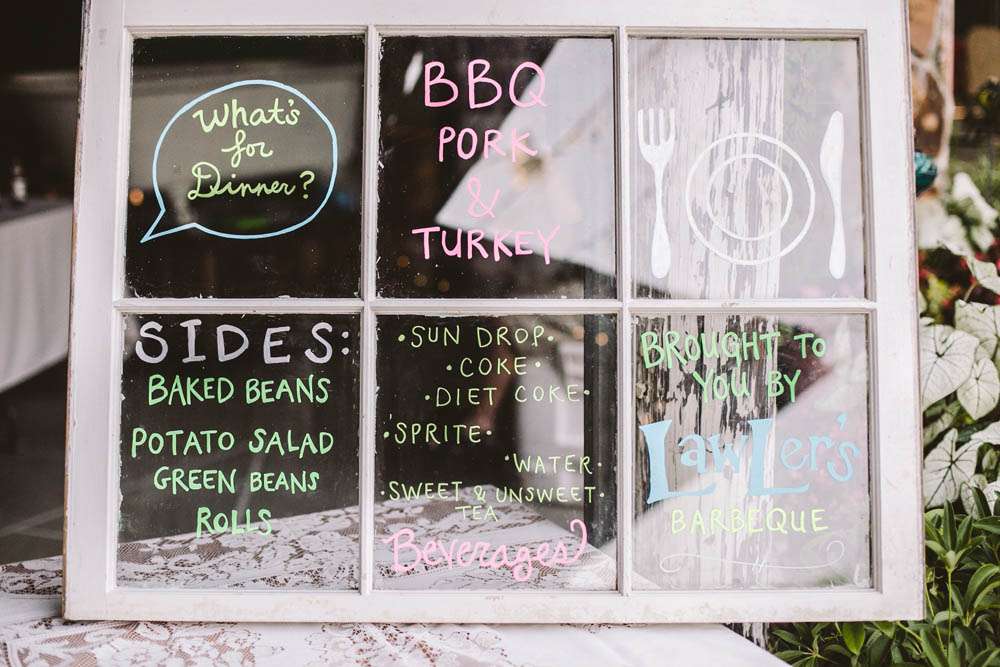 What's
for
Dinner?
BBQ
PORK
&
TURKEY
SIDES:
BAKED BEANS
POTATO SALAD
GREEN BEANS
ROLLS
•SUN DROP•
•COKE•
•DIET COKE•
•SPRITE•
•WATER•
•SWEET & UNSWEET•
TEA
Beverages
BROUGHT TO
YOU BY
LawLer's
BARBEQUE